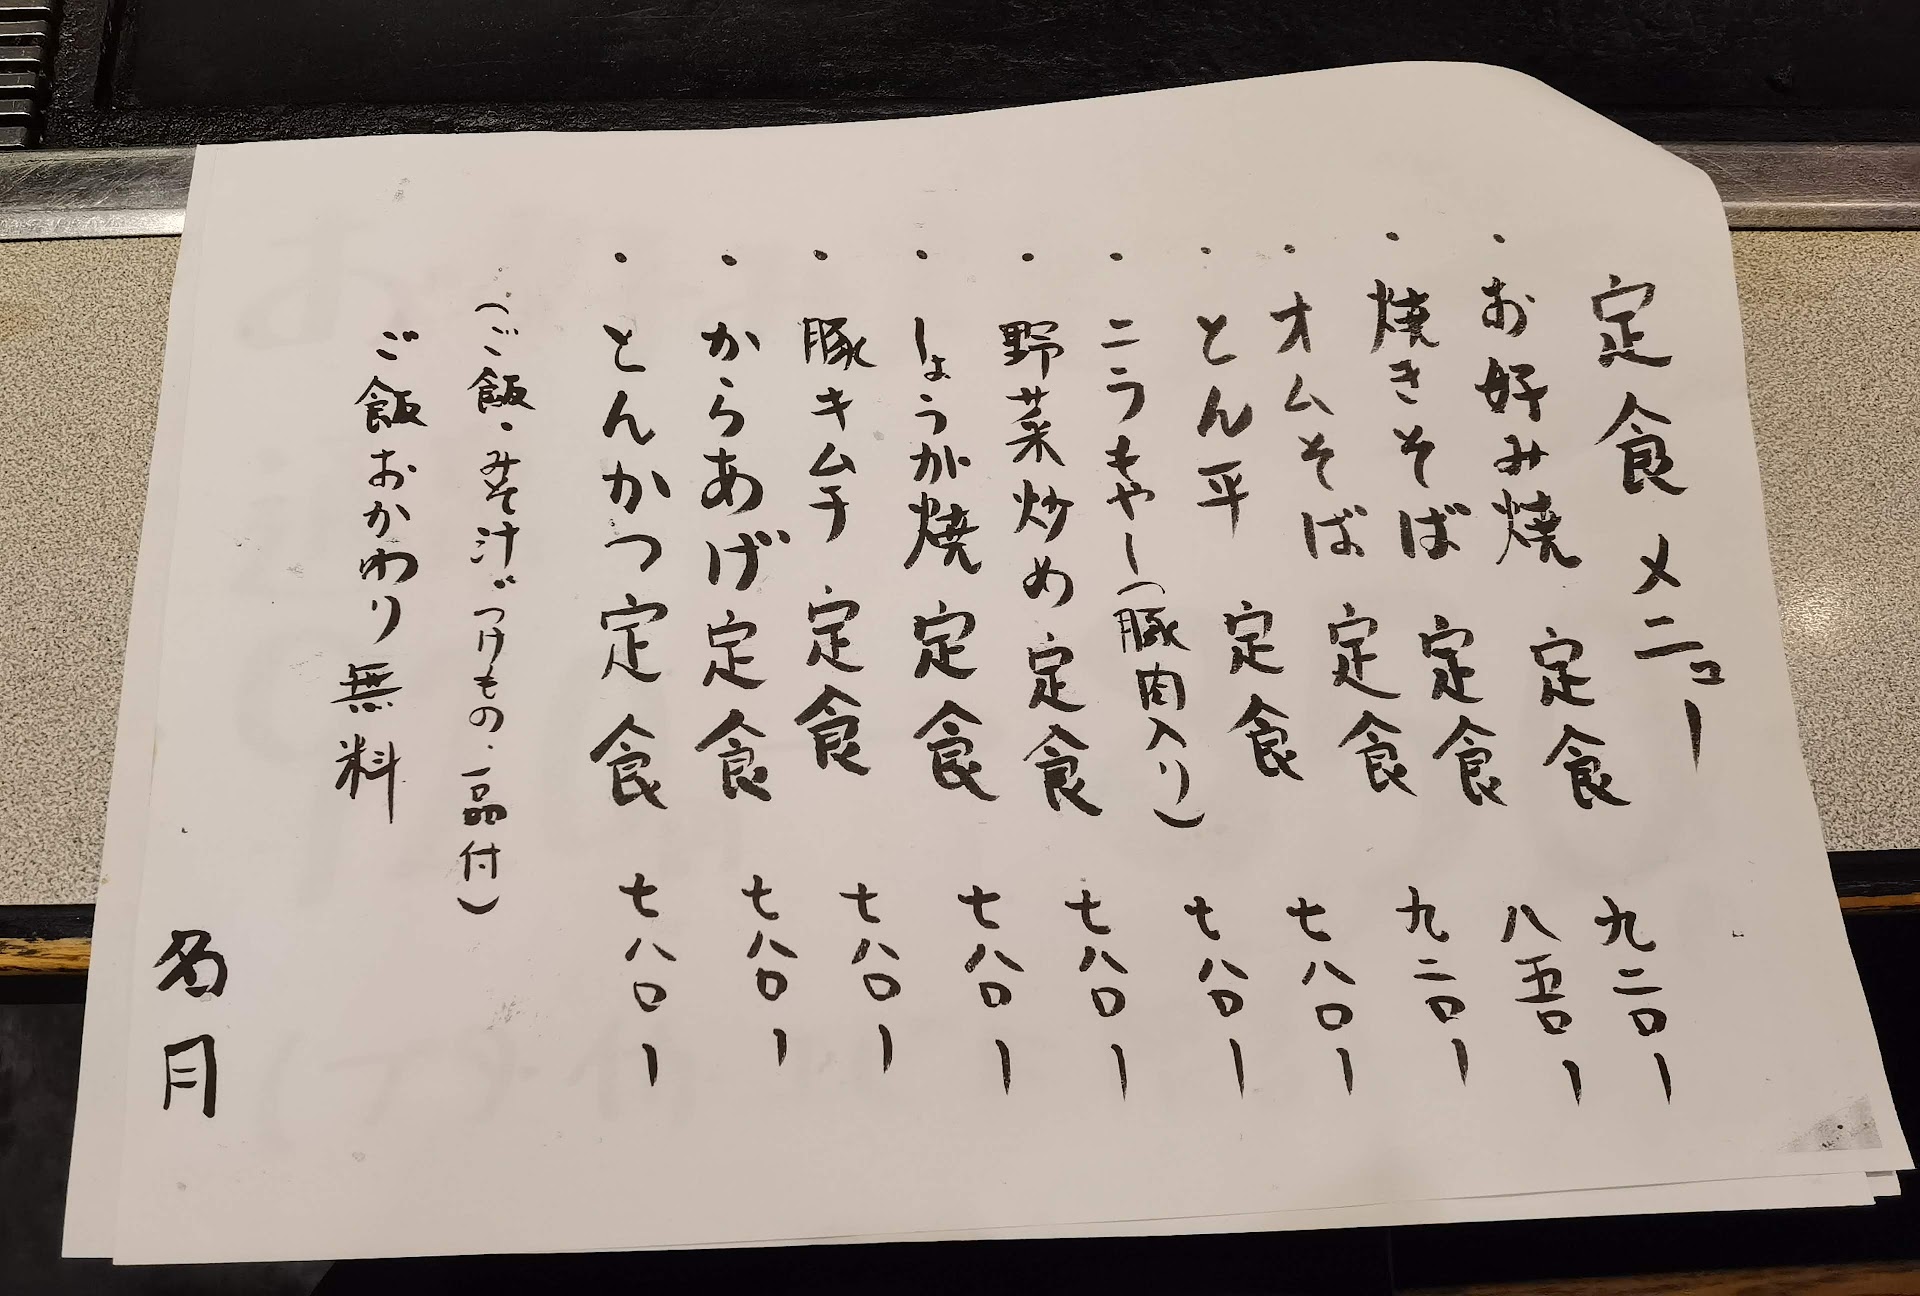 定食メニュー
・お好み焼 定食 九二〇ー
・焼きそば 定食 八五〇ー
・オムそば 定食 九二〇ー
・とん平 定食 七八〇ー
・ニラもやし(豚肉入り) 七八〇ー
・野菜炒め 定食 七八〇ー
・しょうが焼 定食 七八〇ー
・豚キムチ 定食 七八〇ー
・からあげ 定食 七八〇ー
・とんかつ 定食 七八〇ー
(ご飯・みそ汁・つけもの・一品付)
ご飯おかわり無料
名月